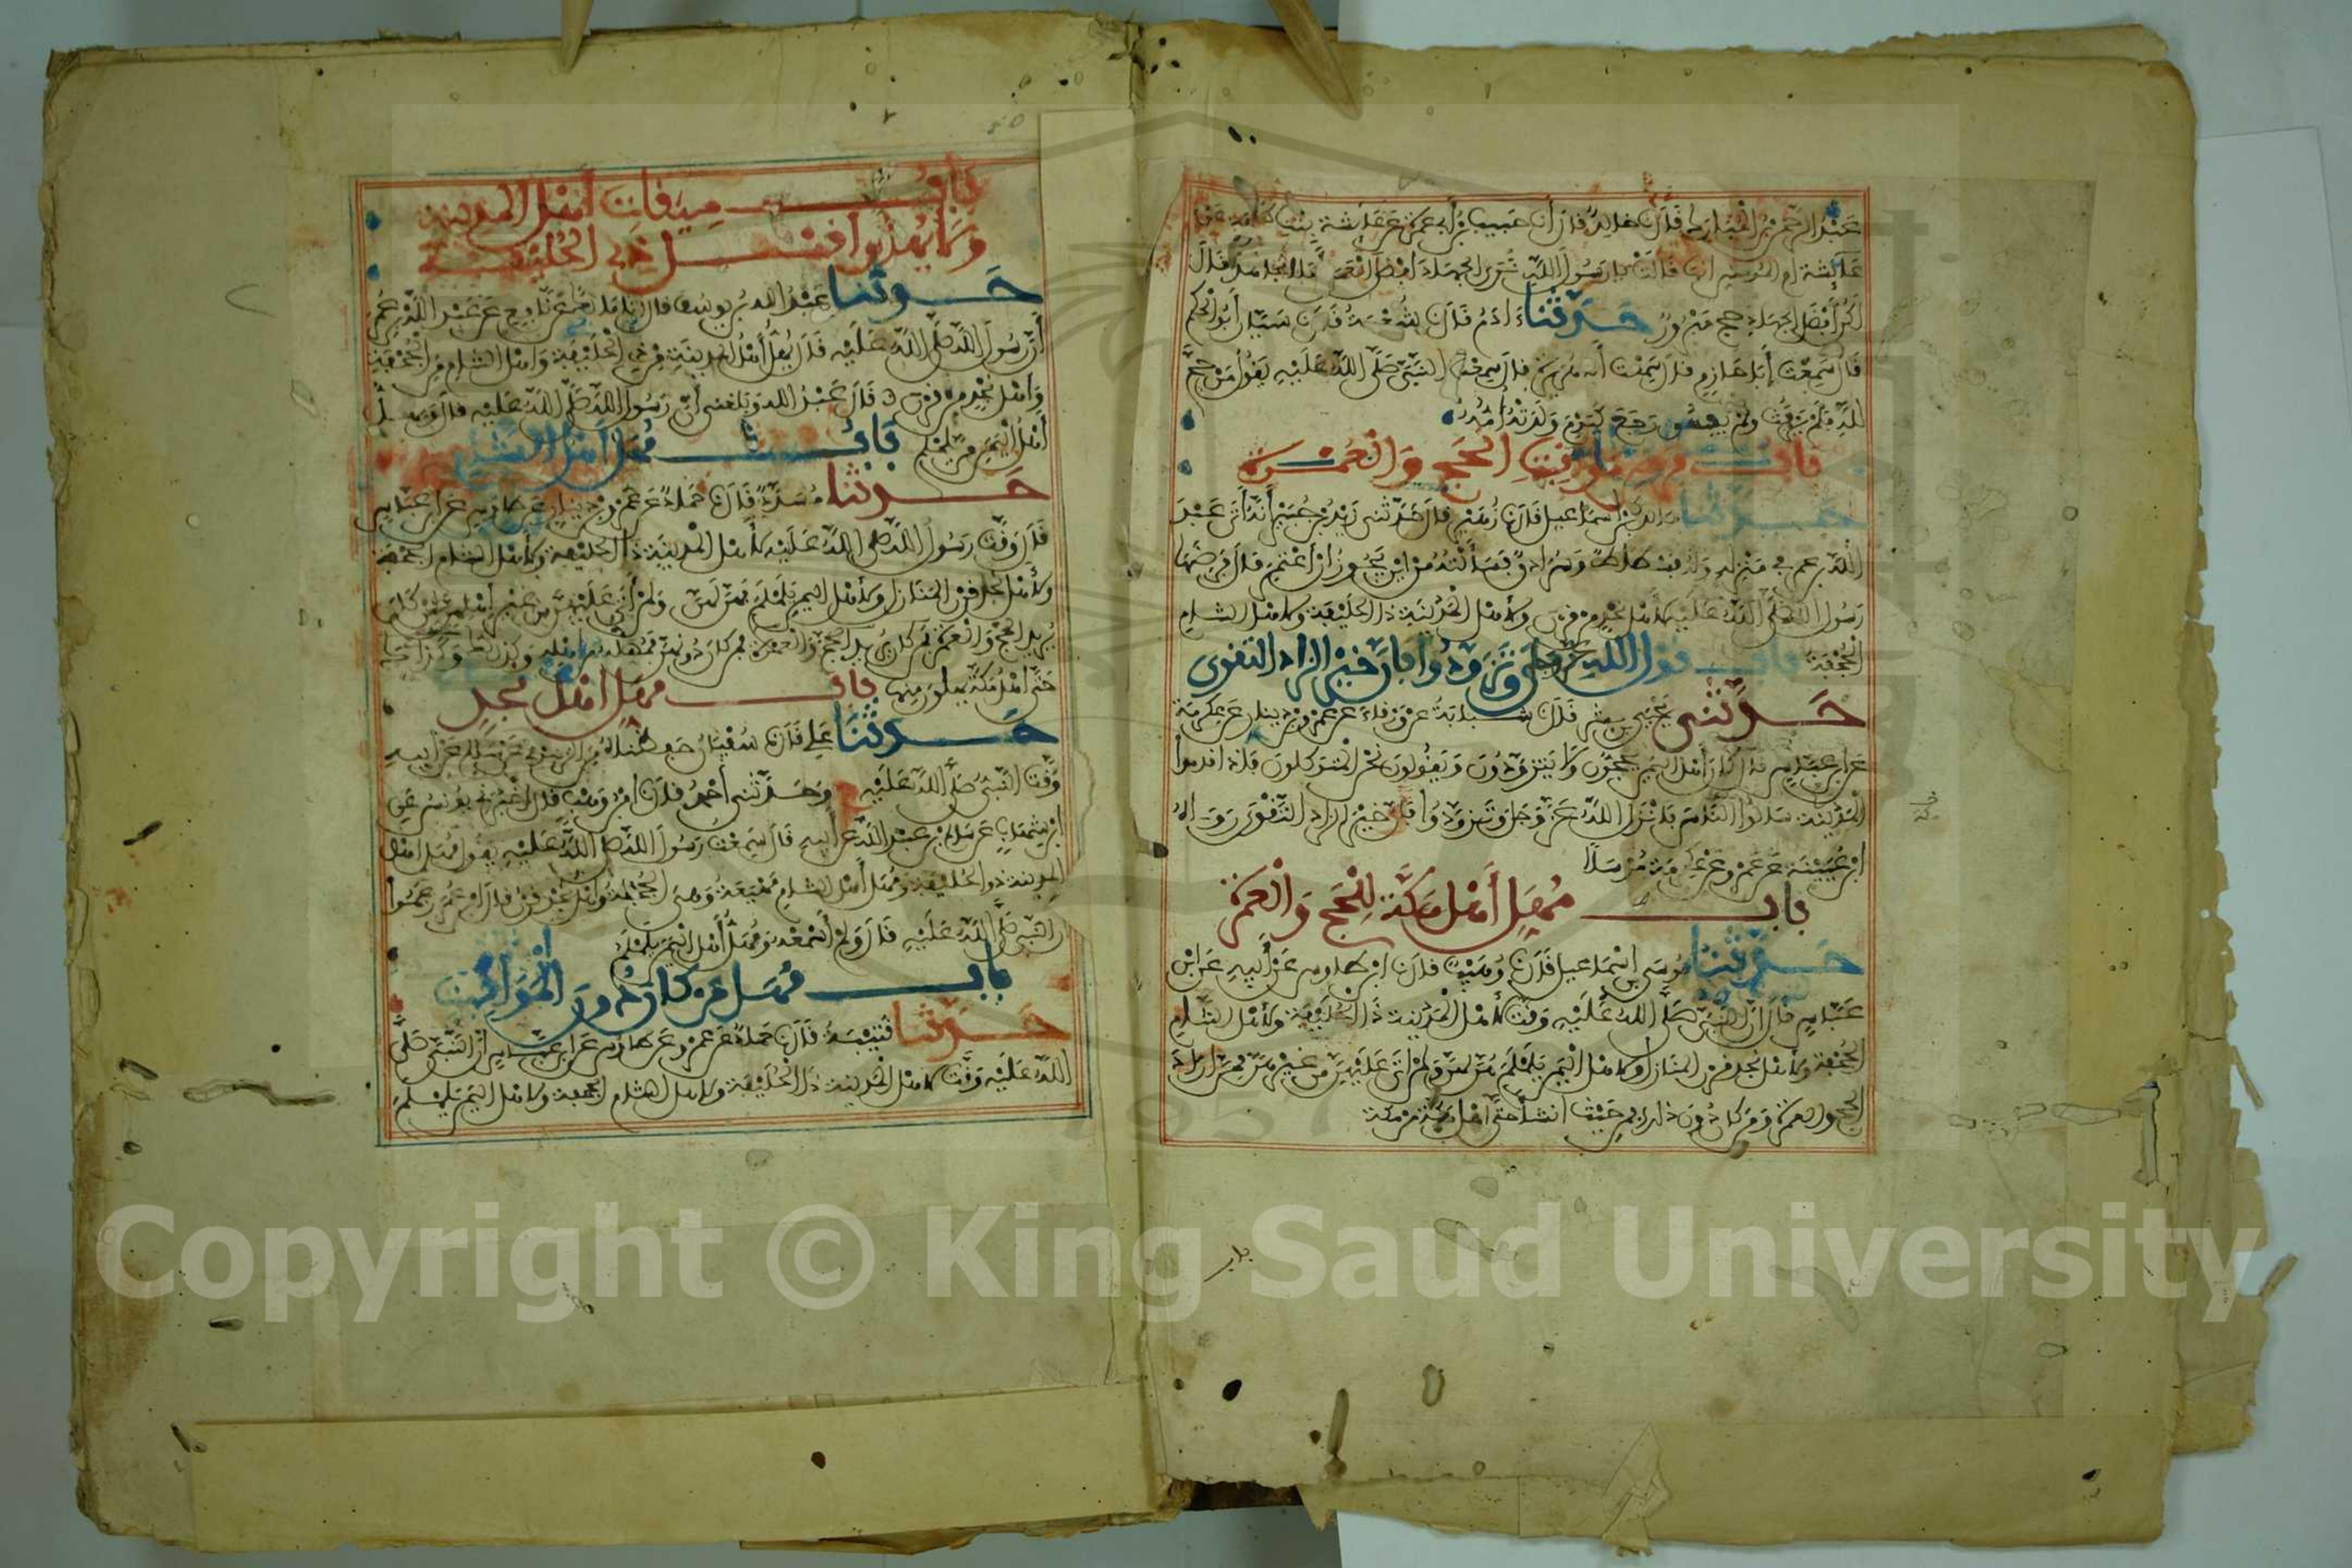 عَبْدُ الرَّحْمٰنِ بْنُ الْمُبَارَكِ قَالَ نا خَالِدٌ قَالَ أَنَا حَبِيبُ بْنُ أَبِي عَمْرَةَ عَنْ عَائِشَةَ بِنْتِ طَلْحَةَ عَنْ
عَائِشَةَ أُمِّ الْمُؤْمِنِينَ أنها قَالَتْ يَا رَسُولَ اللَّهِ نُرَى الْجِهَادَ أَفْضَلَ الْعَمَلِ أفلا نجاهد قَالَ
لَكُنَّ أَفْضَلُ الْجِهَادِ حج مَبْرُورٌ حَدَّثَنَا ءَادَمُ قَالَ نا شُعْبَةُ قَالَ نا سَيَّارٌ أَبُو الْحَكَمِ
قَالَ سَمِعْتُ أَبَا حَازِمٍ قَالَ سَمِعْتُ أَبَا هُرَيْرَةَ قال سَمِعْتُ النَّبِيَّ صَلَّى اللَّهُ عَلَيْهِ يَقُولُ مَنْ حَجَّ
لِلَّهِ فَلَمْ يَرْفُثْ وَلَمْ يَفْسُقْ رَجَعَ كَيَوْمِ وَلَدَتْهُ أُمُّهُ
بَابُ فرض مَوَاقِيتِ الْحَجِّ وَالْعُمْرَةِ
حَدَّثَنَا مالك بن إسماعيل قَالَ نا زُهَيْرٌ قال حَدَّثَنِي زَيْدُ بْنُ جُبَيْرٍ أَنَّهُ أَتَى عَبْدَ
اللَّهِ بن عمر فِي مَنْزِلِهِ وَلَهُ فُسْطَاطٌ وَسُرَادِقٌ فَسَأَلْتُهُ مِنْ أَيْنَ يَجُوزُ أَنْ أَعْتَمِرَ قَالَ فَرَضَهَا
رَسُولُ اللَّهِ صَلَّى اللَّهُ عَلَيْهِ لأهل نجد من قرن ولأهل الْمَدِينَةِ ذا الْحُلَيْفَةِ ولأهل الشام
الْجُحْفَةَ باب قول اللَّهِ عز وجل وَتَزَوَّدُوا فإن خَيْرَ الزاد التقوى
حَدَّثَنِي يَحْيَى بن بشر قَالَ نا شَبَابَةُ عَنْ وَرْقَاءَ عَنْ عَمْرِو بْنِ دِينَارٍ عَنْ عِكْرِمَةَ
عَنِ ابْنِ عَبَّاسٍ قَالَ كَانَ أَهْلُ الْيَمَنِ يَحُجُّونَ وَلَا يَتَزَوَّدُونَ وَيَقُولُونَ نَحْنُ الْمُتَوَكِّلُونَ فَإِذَا قدموا
الْمَدِينَةَ سَأَلُوا النَّاسَ فَأَنْزَلَ اللَّهُ عَزَّ وَجَلَّ وَتَزَوَّدُوا فَإِنَّ خَيْرَ الزاد التَّقْوَى رَوَاهُ
ابْنُ عُيَيْنَةَ عَنْ عَمْرٍو عَنْ عِكْرِمَةَ مُرْسَلًا
باب مُهَلِّ أَهْلِ مَكَّةَ لِلْحَجِّ وَالْعُمْرَةِ
حَدَّثَنَا مُوسَى بن إِسْمَاعِيلَ قَالَ نا وُهَيْبٌ قَالَ نا ابن طاوس عَنْ أَبِيهِ عَنِ ابْنِ
عَبَّاسٍ قَالَ إِنَّ النَّبِيَّ صَلَّى اللهُ عَلَيْهِ وَقَّتَ لأهل الْمَدِينَةِ ذَا الْحُلَيْفَةِ ولأهل الشام
الْجُحْفَةَ ولأهل نجد قرن المنازل ولأهل الْيَمَنِ يَلَمْلَمَ هُنَّ لهن ولمن أتى عَلَيْهِنَّ من غَيْرِهِنَّ ممن أراد
الحج والعمرة وَمَنْ كان دُونَ ذلك فمن حَيْثُ أنشأ حتى أهل مكة من مكة
بَابُ مِيقَاتِ أَهْلِ الْمَدِينَةِ
وَلَا يُهِلُّوا قبل ذِي الْحُلَيْفَةِ
حَدَّثَنَا عَبْدُ اللَّهِ بْنُ يوسف قال نا مَالِكٌ عَنْ نَافِعٍ عَنْ عَبْدِ اللَّهِ بْنِ عُمَرَ
أَنَّ رَسُولَ اللَّهِ صَلَّى اللَّهُ عَلَيْهِ قَالَ يُهِلُّ أَهْلُ الْمَدِينَةِ مِنْ ذِي الْحُلَيْفَةِ وَأَهْلُ الشام مِنَ الْجُحْفَةِ
وَأَهْلُ نَجْدٍ من قرن قَالَ عَبْدُ اللَّهِ وَبَلَغَنِي أَنَّ رَسُولَ اللَّهِ صَلَّى اللَّهُ عَلَيْهِ قال ويهل
أَهْلُ الْيَمَنِ مِنْ يَلَمْلَمَ بَابُ مُهَلِّ أَهْلِ الشام
حَدَّثَنَا مُسَدَّدٌ قَالَ نا حَمَّادٌ عَنْ عَمْرِو بن دينار عن طاوس عن ابن عباس
قَالَ وَقَّتَ رَسُولُ اللَّهِ صَلَّى اللَّهُ عَلَيْهِ لأهل الْمَدِينَةِ ذَا الْحُلَيْفَةِ ولأهل الشام الجحفة
ولأهل نجد قرن المنازل ولأهل اليمن يَلَمْلَمَ فهن لهن ولمن أتى عَلَيْهِنَّ من غَيْرِ أهلهن لمن كان
يريد الحج والعمرة فمن كان دونهن فَمُهَلُّهُ من أهله وكذلك وكذاك
حَتَّى أَهْلُ مَكَّةَ يهلون منها باب مهل أهل نجد
حَدَّثَنَا عَلِي قَالَ نا سُفْيَانُ حفظناه من الزهري عَنْ سَالِمٍ عَنْ أَبِيهِ
وَقَّتَ النَّبِيُّ صَلَّى اللَّهُ عَلَيْهِ وَحَدَّثَنِي أَحْمَدُ قَالَ نا ابْنُ وَهْبٍ قَالَ أخبرني يُونُسُ عَنِ
ابْنِ شِهَابٍ عَنْ سَالِمِ بْنِ عَبْدِ اللَّهِ عَنْ أَبِيهِ قَالَ سَمِعْتُ رَسُولَ اللَّهِ صَلَّى اللَّهُ عَلَيْهِ يقول مُهَلُّ أهل
المدينة ذو الحُلَيْفَةِ وَمُهَلُّ أَهْلِ الشام مَهْيَعَةُ وَهِيَ الْجُحْفَةُ وأهل نجد قرن قال ابن عُمَرَ زعموا
أن النبي صَلَّى اللَّهُ عَلَيْهِ قَالَ وَلَمْ أَسْمَعْهُ وَمُهَلُّ أَهْلِ الْيَمَنِ يَلَمْلَمُ
باب مهل من كان دون الْمَوَاقِيتِ
حَدَّثَنَا قُتَيْبَةُ قَالَ نا حَمَّادٌ عَنْ عَمْرٍو عَنْ طاوس عَنِ ابْنِ عَبَّاسٍ أَنَّ النَّبِيَّ صَلَّى
اللَّهُ عَلَيْهِ وَقَّتَ لأهل الْمَدِينَةِ ذَا الْحُلَيْفَةِ ولأهل الشام الجحفة ولأهل اليمن يَلَمْلَمَ
باب
Copyright © King Saud University
1957